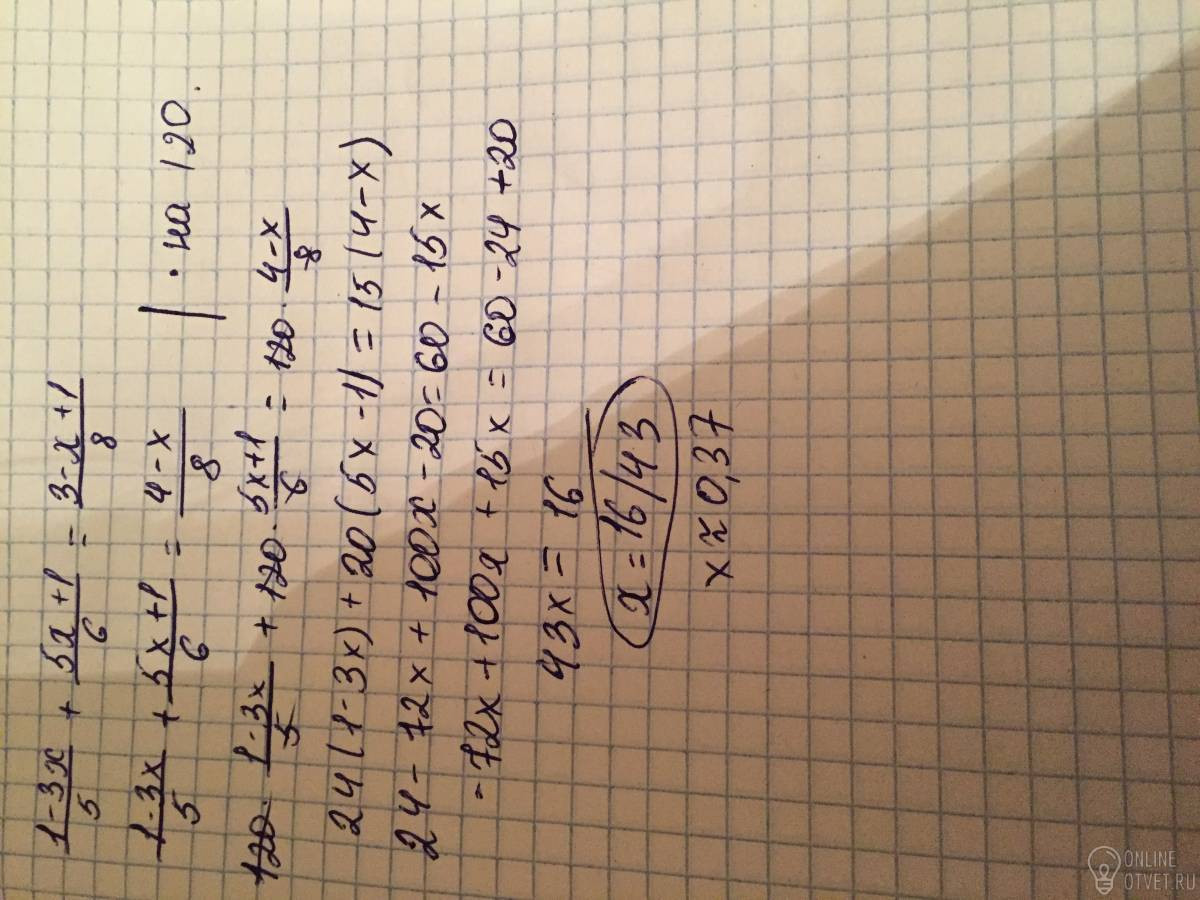 (1-3x)/5 + (5x+1)/6 = (3-x+1)/8
(1-3x)/5 + (5x+1)/6 = (4-x)/8 | · на 120.
120 · (1-3x)/5 + 120 · (5x+1)/6 = 120 · (4-x)/8
24(1-3x) + 20(5x-1) = 15(4-x)
24 - 72x + 100x - 20 = 60 - 15x
-72x + 100x + 15x = 60 - 24 + 20
43x = 16
x = 16/43
x ≈ 0,37
ONLINE
OTVET.RU